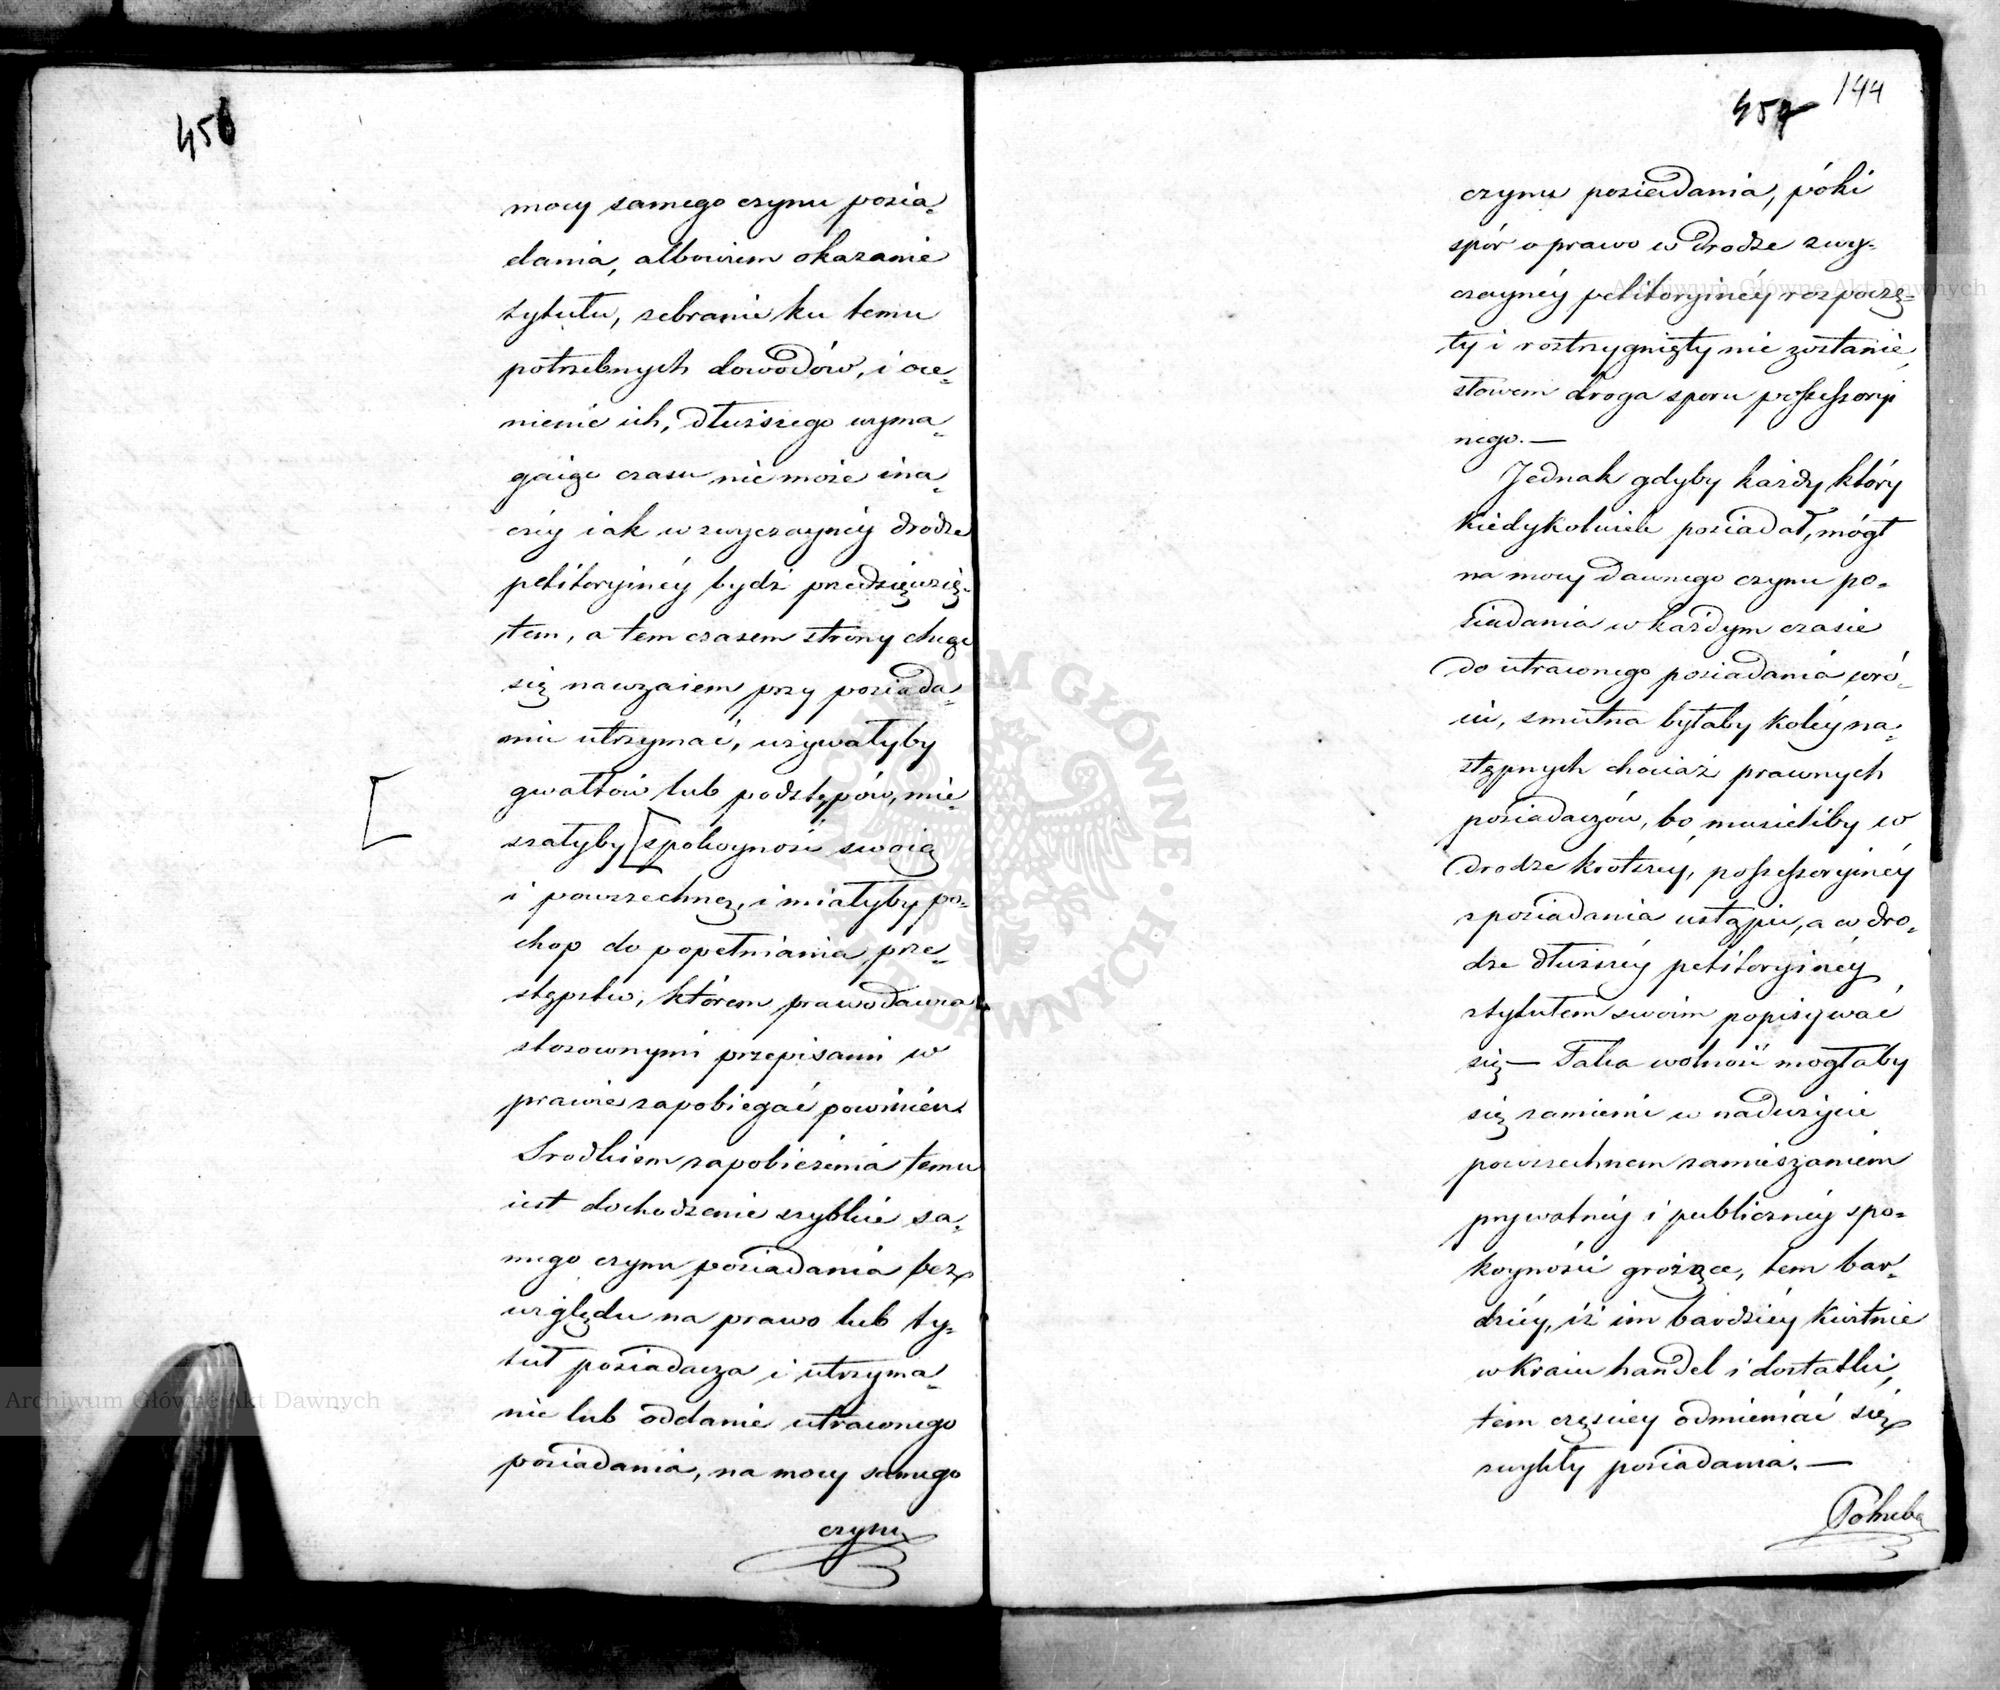 456
mocy samego czynu posia=
dania, albowiem okazanie
tytułu, zebranie ku temu
potrzebnych dowodów, i oce=
nienie ich, dłuższego wyma=
gaiąc czasu nie może ina=
czéy iak w zwyczaynéy drodze
petitoryinéy bydź przedsięwzię=
tem, a tem czasem strony chcąc
się nawzaiem przy posiada=
niu utrzymać, używałyby
gwałtów lub podstępów, mie=
szałyby [spokoyność swoią
i powszechną, i miałyby po=
chop do popełniania prze=
stępstw, którem prawodawca
stosownymi przepisami w
prawie zapobiegać powinien
Srodkiem zapobieżenia temu
iest dochodzenie szybkie sa=
mego czynu posiadania bez
względu na prawo lub ty=
tuł posiadacza i utrzyma=
nie lub oddanie utraconego
posiadania, na mocy samego
czynu
457 144
czynu posiadania, póki
spór o prawo w drodze zwy=
czaynéy petitoryinéy rozpoczę=
ty i rostrzygnięty nie zostanie,
słowem droga sporu possessoryi
nego.—
Jednak gdyby każdy, który
kiedykolwiek posiadał, mógł
na mocy dawnego czynu po=
siadania w każdym czasie
do utraconego posiadania wró=
cić, smutna byłaby koléy na=
stępnych chociaż prawnych
posiadaczów, bo musieliby w
drodze krótszéy, possessoryinéy
z posiadania ustąpić, a w dro=
dze dłuższéy petitoryinéy
z tytułem swoim popisywać
się — Taka wolność mogłaby
się zamienić w nadużycie
powszechnem zamieszaniem
prywatnéy i publicznéy spo=
koyności grożące, tem bar=
dziéy, iż im bardziéy kwitnie
w Kraiu handel i dostatki,
tem częściey odmieniać się
zwykły posiadania.—
Pobudka
Archiwum Główne Akt Dawnych
Archiwum Główne Akt Dawnych
ARCHIWUM GŁÓWNE AKT DAWNYCH